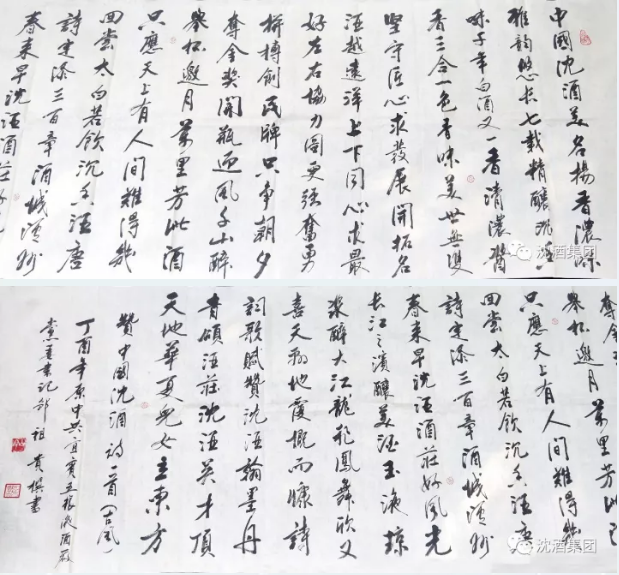 中國沈酒美名揚香濃味
雅韻悠长七載精釀沉香
味子年白酒又一香清濃醬
香三合一色香味美世無雙
堅守匠心求發展開拓名
酒越遠洋上下同心求最
好左右協力圖更强奮勇
拼搏創民牌只争朝夕
奪金奖開瓶迎风千山醉
舉杯邀月萬里芳此酒
只應天上有人間難得幾
回尝太白若飲沉香酒唐
詩定添三百章酒城瀘州
春来早沈酒酒莊好
沈酒集团
奪金
舉杯邀月萬里芳此
只應天上有人間難得幾
回尝太白若飲沉香酒唐
詩定添三百章酒城瀘州
春来早沈酒酒莊好風光
長江之濱釀美酒玉液瓊
漿醉大江龍飛鳳舞欣又
喜天翻地覆慨而慷詩
詞歌賦贊沈酒翰墨丹
青頌酒莊沈酒英才頂
天地華夏兒女主東方
贊中國沈酒詩二首（古風）
丁酉年原中共宜賓五粮液酒厰
黨委書記鄒祖贵撰書
沈酒集团